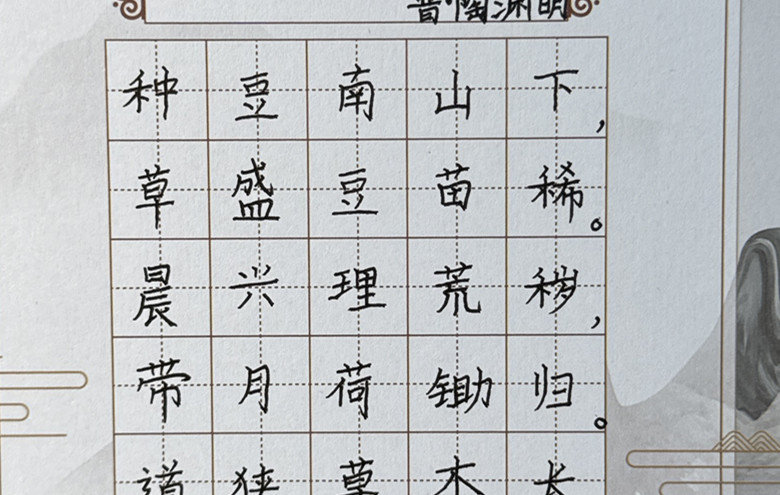 晋·陶渊明
种豆南山下，
草盛豆苗稀。
晨兴理荒秽，
带月荷锄归。
道狭草木长